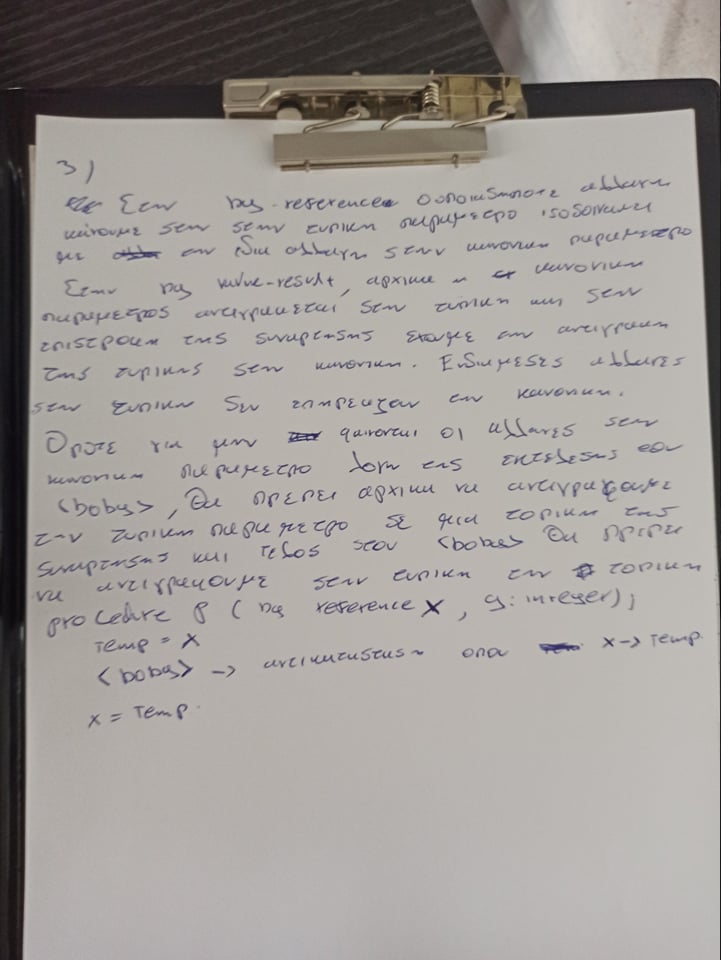 3)
Στην by-reference οποιαδηποτε αλλαγη
κανουμε στην τυπικη παραμετρο ισοδυναμει
με την ιδια αλλαγη στην κανονικη παραμετρο
Στην by value-result, αρχικα η κανονικη
παραμετρος αντιγραφεται στην τυπικη και στην
επιστροφη της συναρτησης εχουμε την αντιγραφη
της τυπικης στην κανονικη. Ενδιαμεσες αλλαγες
στην τυπικη δεν επηρεαζαν την κανονικη.
Οποτε για μην φαινονται οι αλλαγες στην
κανονικη παραμετρο λογη της εκτελεσης του
<body>, θα πρεπει αρχικα να αντιγραψουμε
την τυπικη παραμετρο σε μια τοπικη της
συναρτησης και τελος στου <body> θα πρεπει
να αντιγραφουμε στην τυπικη την τοπικη
procedure P ( by reference X, y: integer);
Temp = X
<body> -> αντικατασταση οπου x -> Temp
x = Temp.